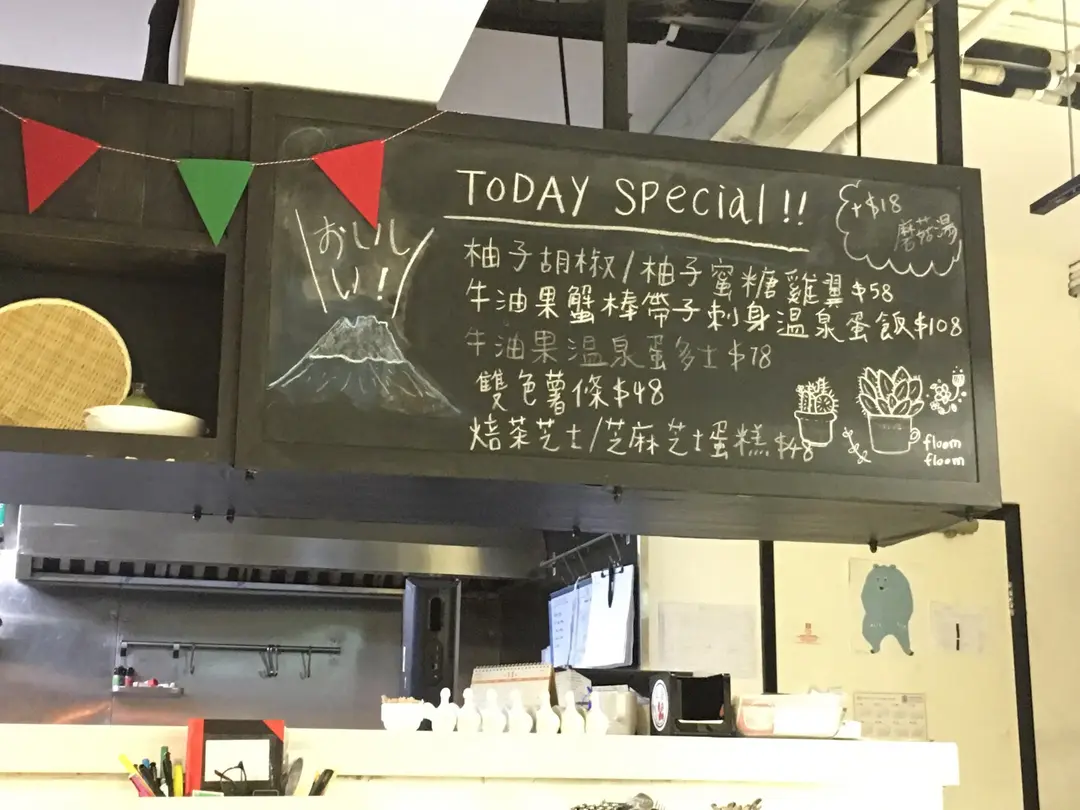 TODAY SPecial!!
+$18
蘑菇湯
おいし
い!
柚子胡椒/柚子蜜糖雞翼$58
牛油果蟹棒帶子刺身溫泉蛋飯$108
牛油果溫泉蛋多士$78
雙色薯條$48
焙茶芝士/芝麻芝士蛋糕$48
floem
floem